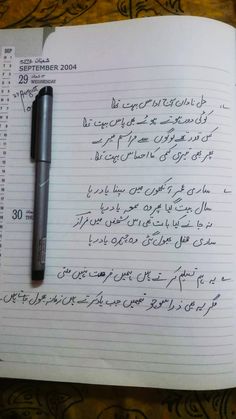 SEP
شعبان
SEPTEMBER 2004
29
WEDNESDAY
دل ناداں آج اداس بہت تھا
کوئی دور ہوتے ہوئے بھی پاس بہت تھا
لوگوں سے مراسم میرے
پھر بھی تیری کمی کا احساس بہت تھا
ساری عمر آنکھوں میں سپنا یاد رہا
سال بیت گیا پر وہ یاد رہا
نہ جانے کیا بات تھی اس شخص میں فراز
ساری محفل بھول گئی وہ چہرہ یاد رہا
30
یہ ہم تسلیم کرتے ہیں ہمیں فرصت نہیں ملتی
مگر یہ بھی ذرا سوچو تمہیں جب یاد کرتے ہیں زمانہ بھول جاتے ہیں